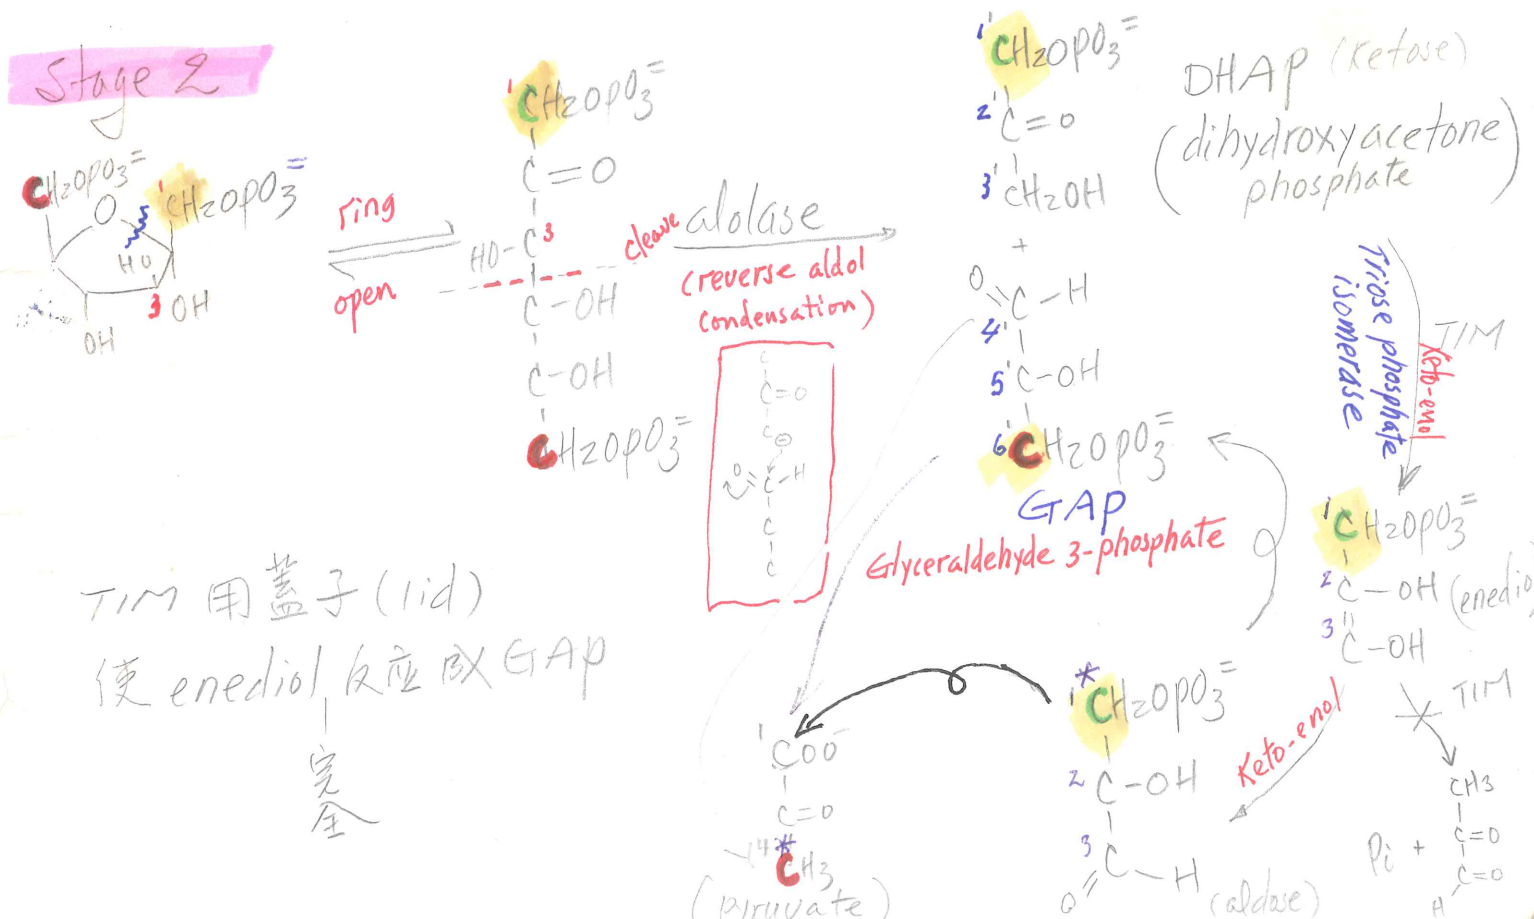 Stage 2
CH2OPO3=
O
1 CH2OPO3=
HO
3 OH
OH
ring
open
1 CH2OPO3=
C=O
HO-C 3
C-OH
C-OH
CH2OPO3=
cleave
alolase
(reverse aldol
condensation)
C
C=O
C ⊖
O=C-H
C
C
1' CH2OPO3=
2' C=O
3' CH2OH
+
O=C-H
4'
5' C-OH
6' CH2OPO3=
GAP
Glyceraldehyde 3-phosphate
DHAP (Ketose)
(dihydroxyacetone
phosphate)
Triose phosphate
isomerase
TIM
Keto-enol
1 CH2OPO3=
2 C-OH (enedio
3 C-OH
TIM
Keto-enol
CH3
C=O
Pi +
C=O
H
1 * CH2OPO3=
2 C-OH
3 C-H
O
(aldose)
1 COO-
C=O
14 *
CH3
(piruvate)
TIM 用蓋子(lid)
使 enediol 反应成 GAP
完
全